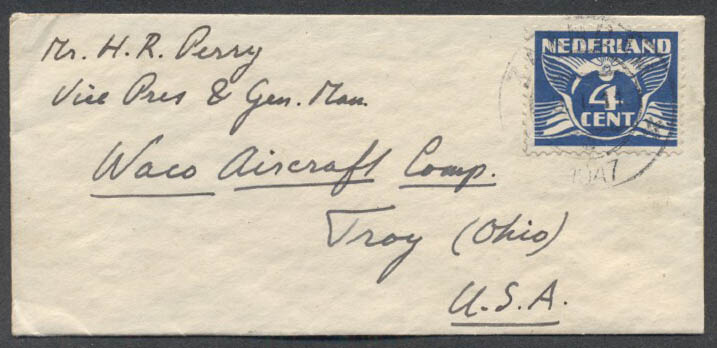 Mr. H. R. Perry
Vice Pres & Gen. Man.
Waco Aircraft Comp.
Troy (Ohio)
U.S.A.
NEDERLAND
4
CENT.
1947